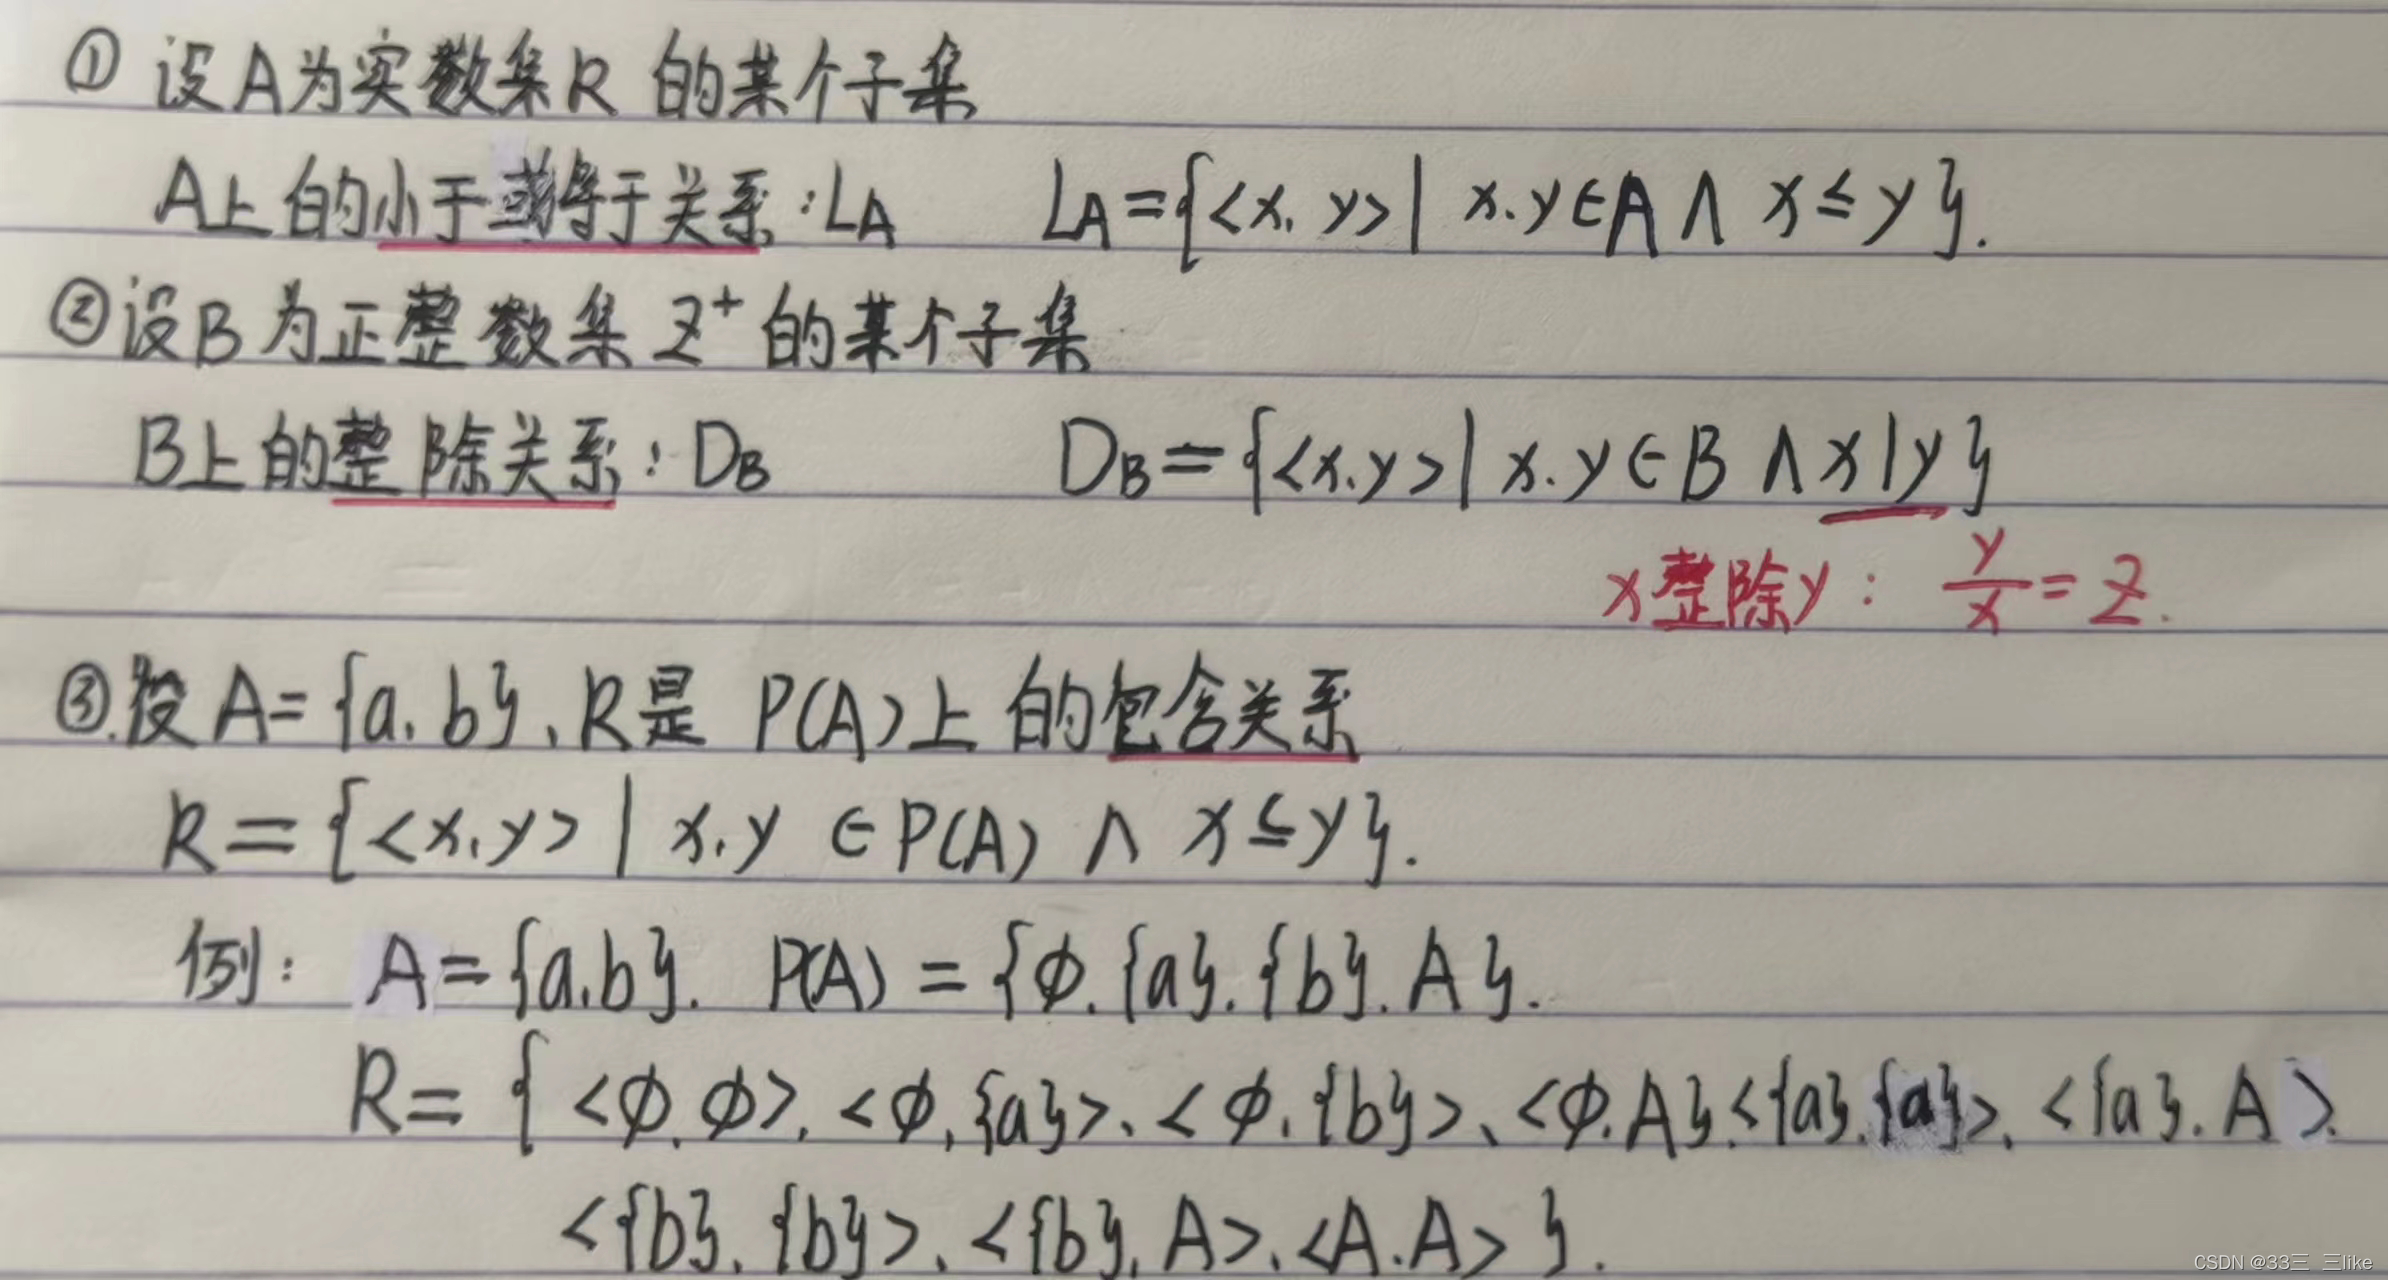 ① 设A为实数集R 的某个子集
A上的小于或等于关系:LA LA={<x, y>| x.y∈A ∧ x≤y}.
②设B为正整数集Z⁺的某个子集
B上的整除关系:DB DB={<x.y>| x.y∈B ∧x|y}
x整除y: y/x=Z.
③.设A={a, b}、R是 P(A)上的包含关系
R={<x,y>| x,y ∈P(A) ∧ x⊆y}.
例: A={a.b}. P(A)={φ.{a}.{b}.A}.
R={<φ.φ>、<φ,{a}>、<φ.{b}>、<φ.A}.<{a}.{a}>、<{a}.A>.
<{b}.{b}>、<{b}.A>、<A.A>}.
CSDN @33三 三like